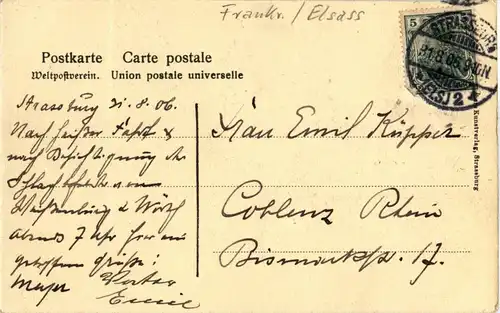 Frankr. / Elsass
5
STRASSBURG
21.8.06.
(ELS) 2
Postkarte Carte postale
Weltpostverein. Union postale universelle
Kunstverlag, Strassburg
Strassburg 21.8.06
Nach heißer Fahrt &
nach Besichtigung der
Schlachtfelder von
Weißenburg & Wörth
Abends 7 Uhr hier an
getroffen Grüße!
Emil
Frau Emil Küpper
Coblenz Rhein
Bismarckstr. 17.